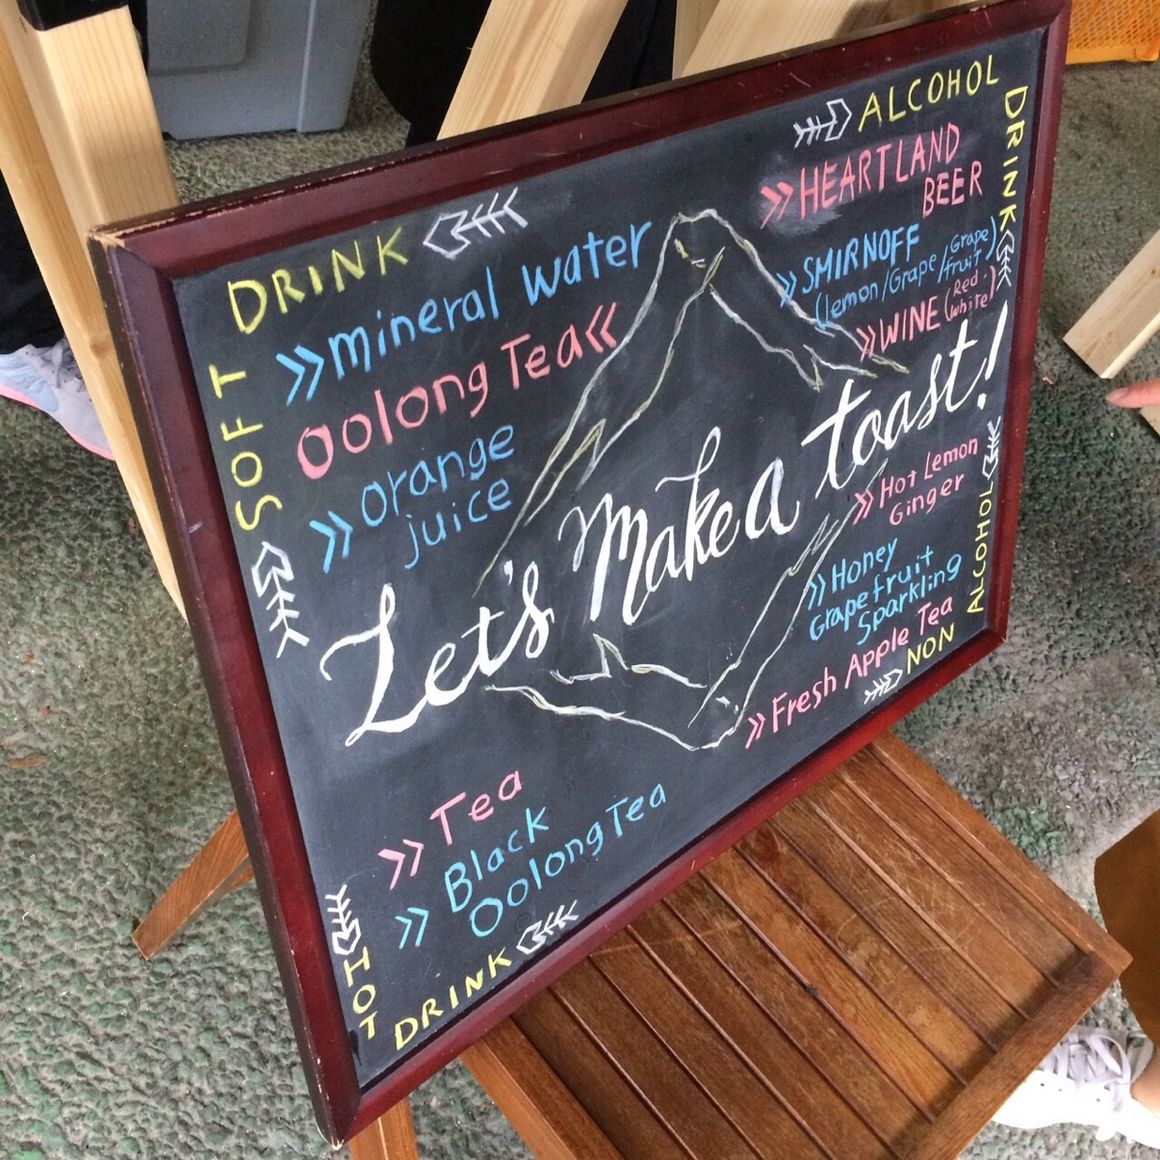 SOFT DRINK
mineral water
oolong Tea
orange
juice
ALCOHOL DRINK
HEARTLAND
BEER
SMIRNOFF
(lemon/Grape/Grape
fruit)
WINE (Red
White)
Let's Make a toast!
Hot Lemon
Ginger
Honey
Grapefruit
Sparkling
Fresh Apple Tea
NON ALCOHOL
Tea
Black
Oolong Tea
HOT DRINK